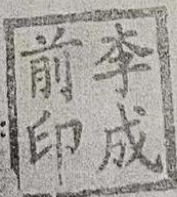 李成
前印